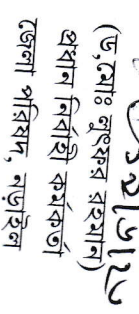 (ড,মোঃ লুৎফর রহমান)
প্রধান নির্বাহী কর্মকর্তা
জেলা পরিষদ, নড়াইল